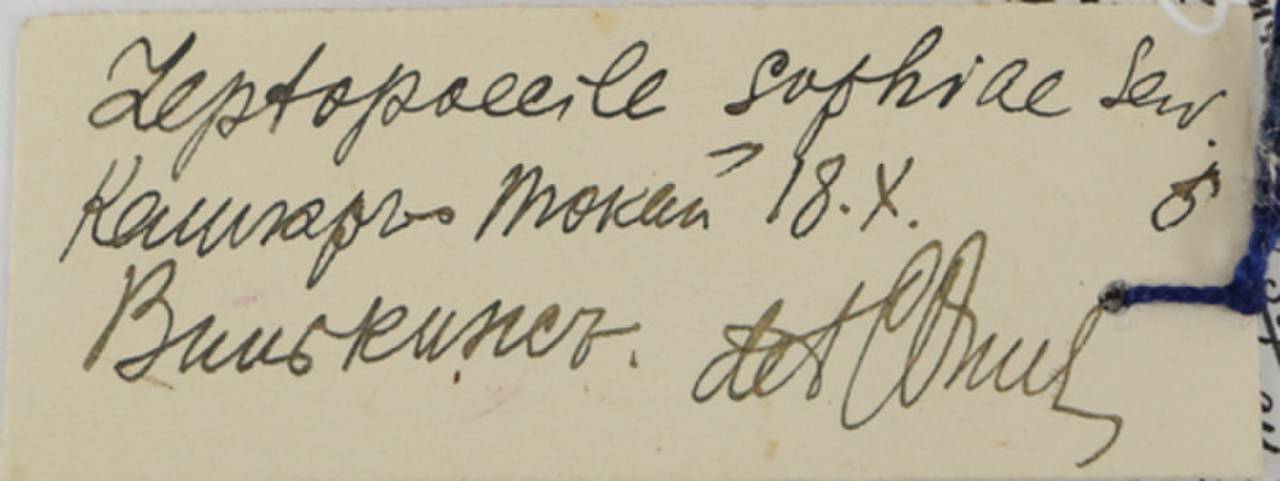 Leptopoecile sophiae Sew.
Кашкаръ Токай 18.X. ♂
Вилькинсъ. det